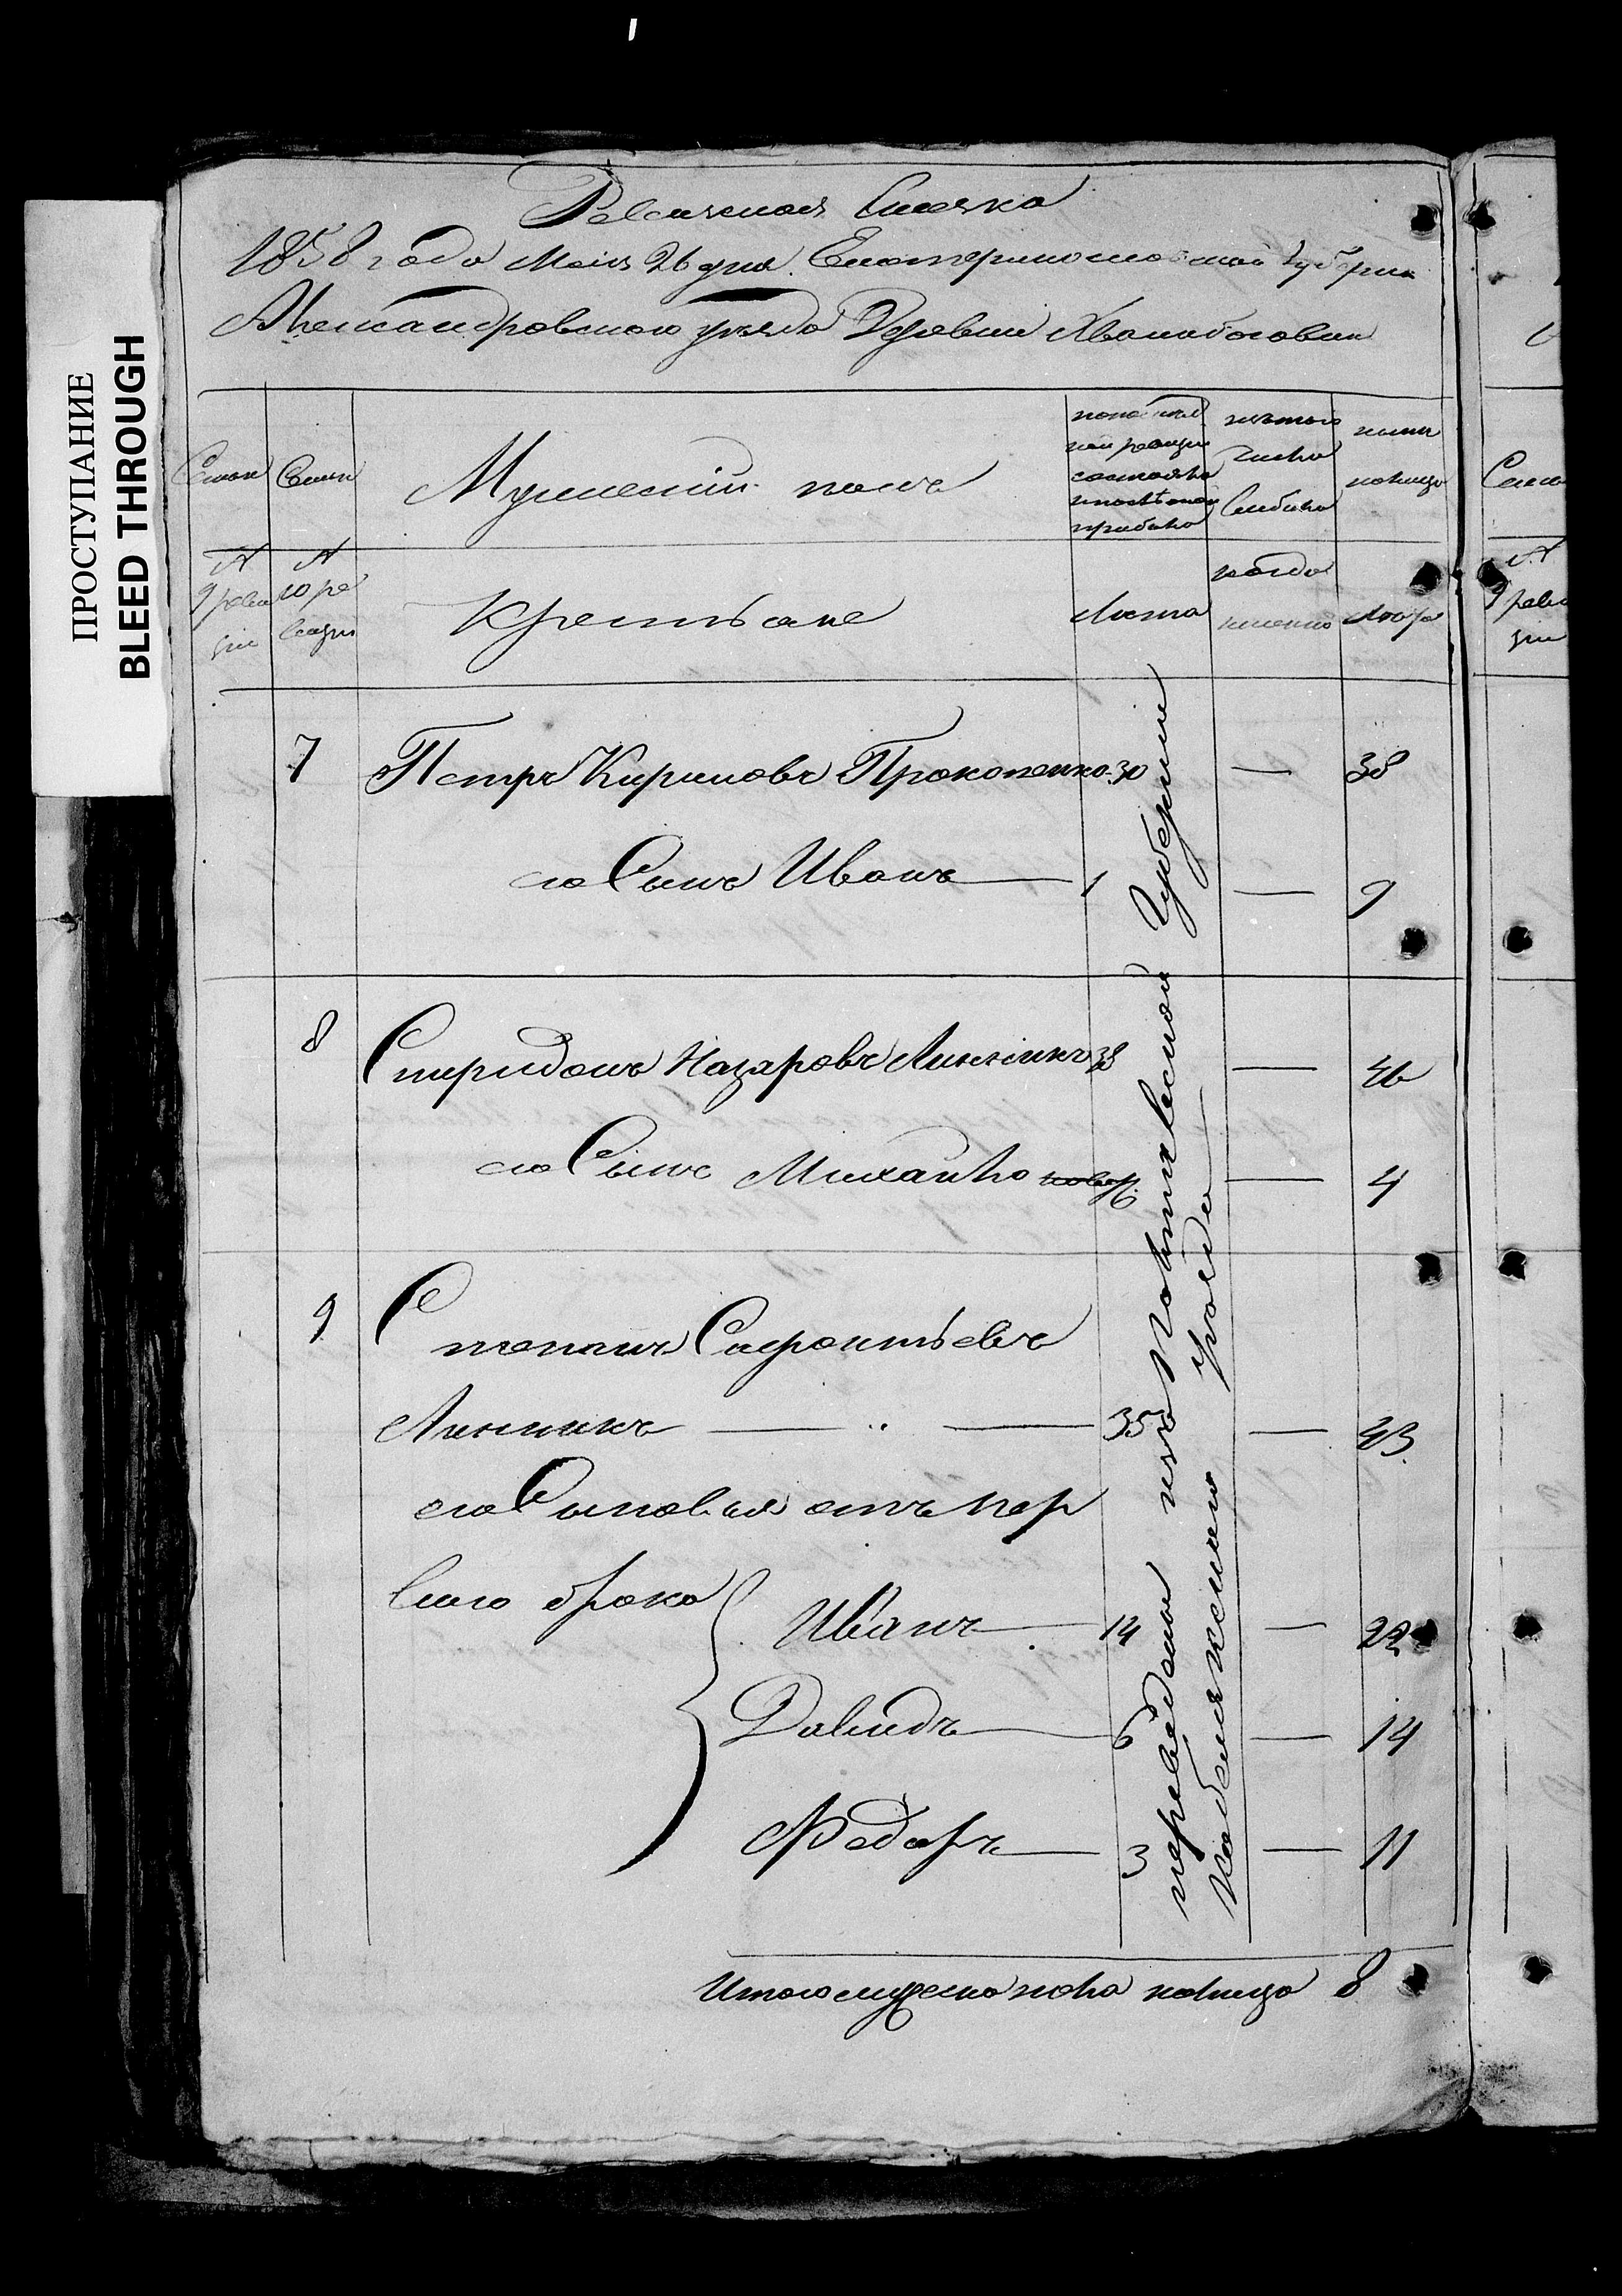 ПРОСТУПАНИЕ
BLEED THROUGH
Ревизская Сказка
1858 года Маія 26 дня. Екатеринославской Губерніи
Александровскаго уѣзда Деревни
Семьи
Семьи
Мужескій полъ
по послѣдней ревизіи состояло и послѣ оной прибыло
изъ того числа выбыло
нынѣ налицо
№ 9 ревизіи
№ 10 ревизіи
Крестьяне
Лѣта
когда именно
Лѣта
7 Петръ Кириловъ Прокопенко 30 — 38
его Сынъ Иванъ 1 — 9
8 Спиридонъ Назаровъ Линникъ 38 — 46
его Сынъ Михайло — 4
9 Степанъ Сафонтьевъ
Линникъ — 35 — 43
его Сыновья отъ пер
ваго брака
Иванъ 14 — 22
Давидъ 6 — 14
Федоръ 3 — 11
переведены изъ Полтавской Губерніи
Кобелякскаго уѣзда
Итого мужеска пола налицо 8